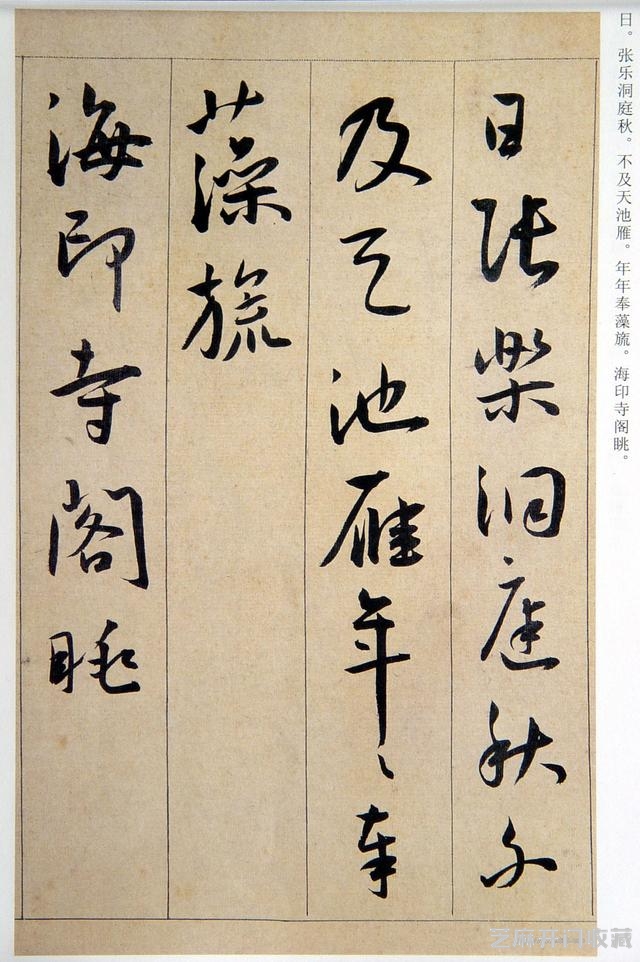 日。张乐洞庭秋。不及天池雁。年年奉藻旒。海印寺阁眺。
日張樂洞庭秋不
及天池雁年々奉
藻旒
海印寺閣眺
芝麻开门收藏